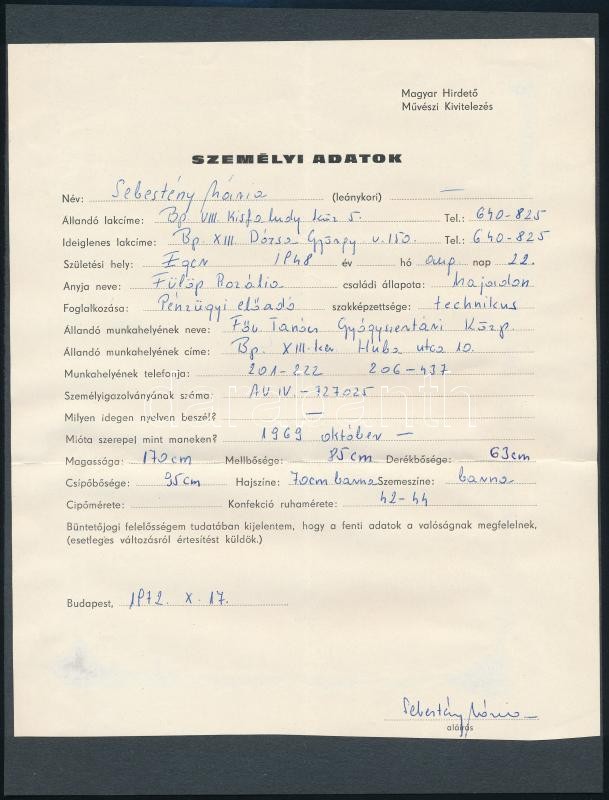 Magyar Hirdető
Művészi Kivitelezés
SZEMÉLYI ADATOK
Név: Sebestény Mária (leánykori) —
Állandó lakcíme: Bp. VIII. Kisfaludy köz 5. Tel.: 640-825
Ideiglenes lakcíme: Bp. XIII Dózsa György u. 150. Tel.: 640-825
Születési hely: Eger 1948 év hó aug nap 22.
Anyja neve: Fülöp Rozália családi állapota: hajadon
Foglalkozása: Pénzügyi előadó szakképzettsége: technikus
Állandó munkahelyének neve: Főv. Tanács Gyógyszertári Közp.
Állandó munkahelyének címe: Bp. XIII. ker Huba utca 10.
Munkahelyének telefonja: 201-222 206-437
Személyigazolványának száma: AU IV - 727025
Milyen idegen nyelven beszél? —
Mióta szerepel mint maneken? 1969 október —
Magassága: 170 cm Mellbősége: 85 cm Derékbősége: 63 cm
Csípőbősége: 95 cm Hajszíne: 70 cm barna Szemeszíne: barna
Cipőmérete: Konfekció ruhamérete: 42-44
Büntetőjogi felelősségem tudatában kijelentem, hogy a fenti adatok a valóságnak megfelelnek,
(esetleges változásról értesítést küldök.)
Budapest, 1972. X. 17.
Sebestény Mária
aláírás
darabanth